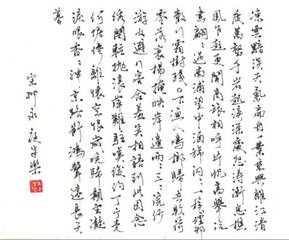 凍雲黯淡天氣扁舟一葉乘興離江渚
度萬壑千岩越溪深處怒濤漸息樵
風乍起更聞商旅相呼片帆高舉泛
畫鷁翩翩過南浦望中酒旆閃閃一簇煙邨
數行霜樹殘日下漁人鳴榔歸去敗荷
零落衰楊掩映岸邊兩兩三三浣紗
游女避行客含羞笑相語到此因念
繡閣輕拋浪萍難駐嘆後約丁寧竟
何據慘離懷空恨歲晚歸期阻凝
淚眼杳杳神京路斷鴻聲遠長天
暮
宋柳永夜半樂